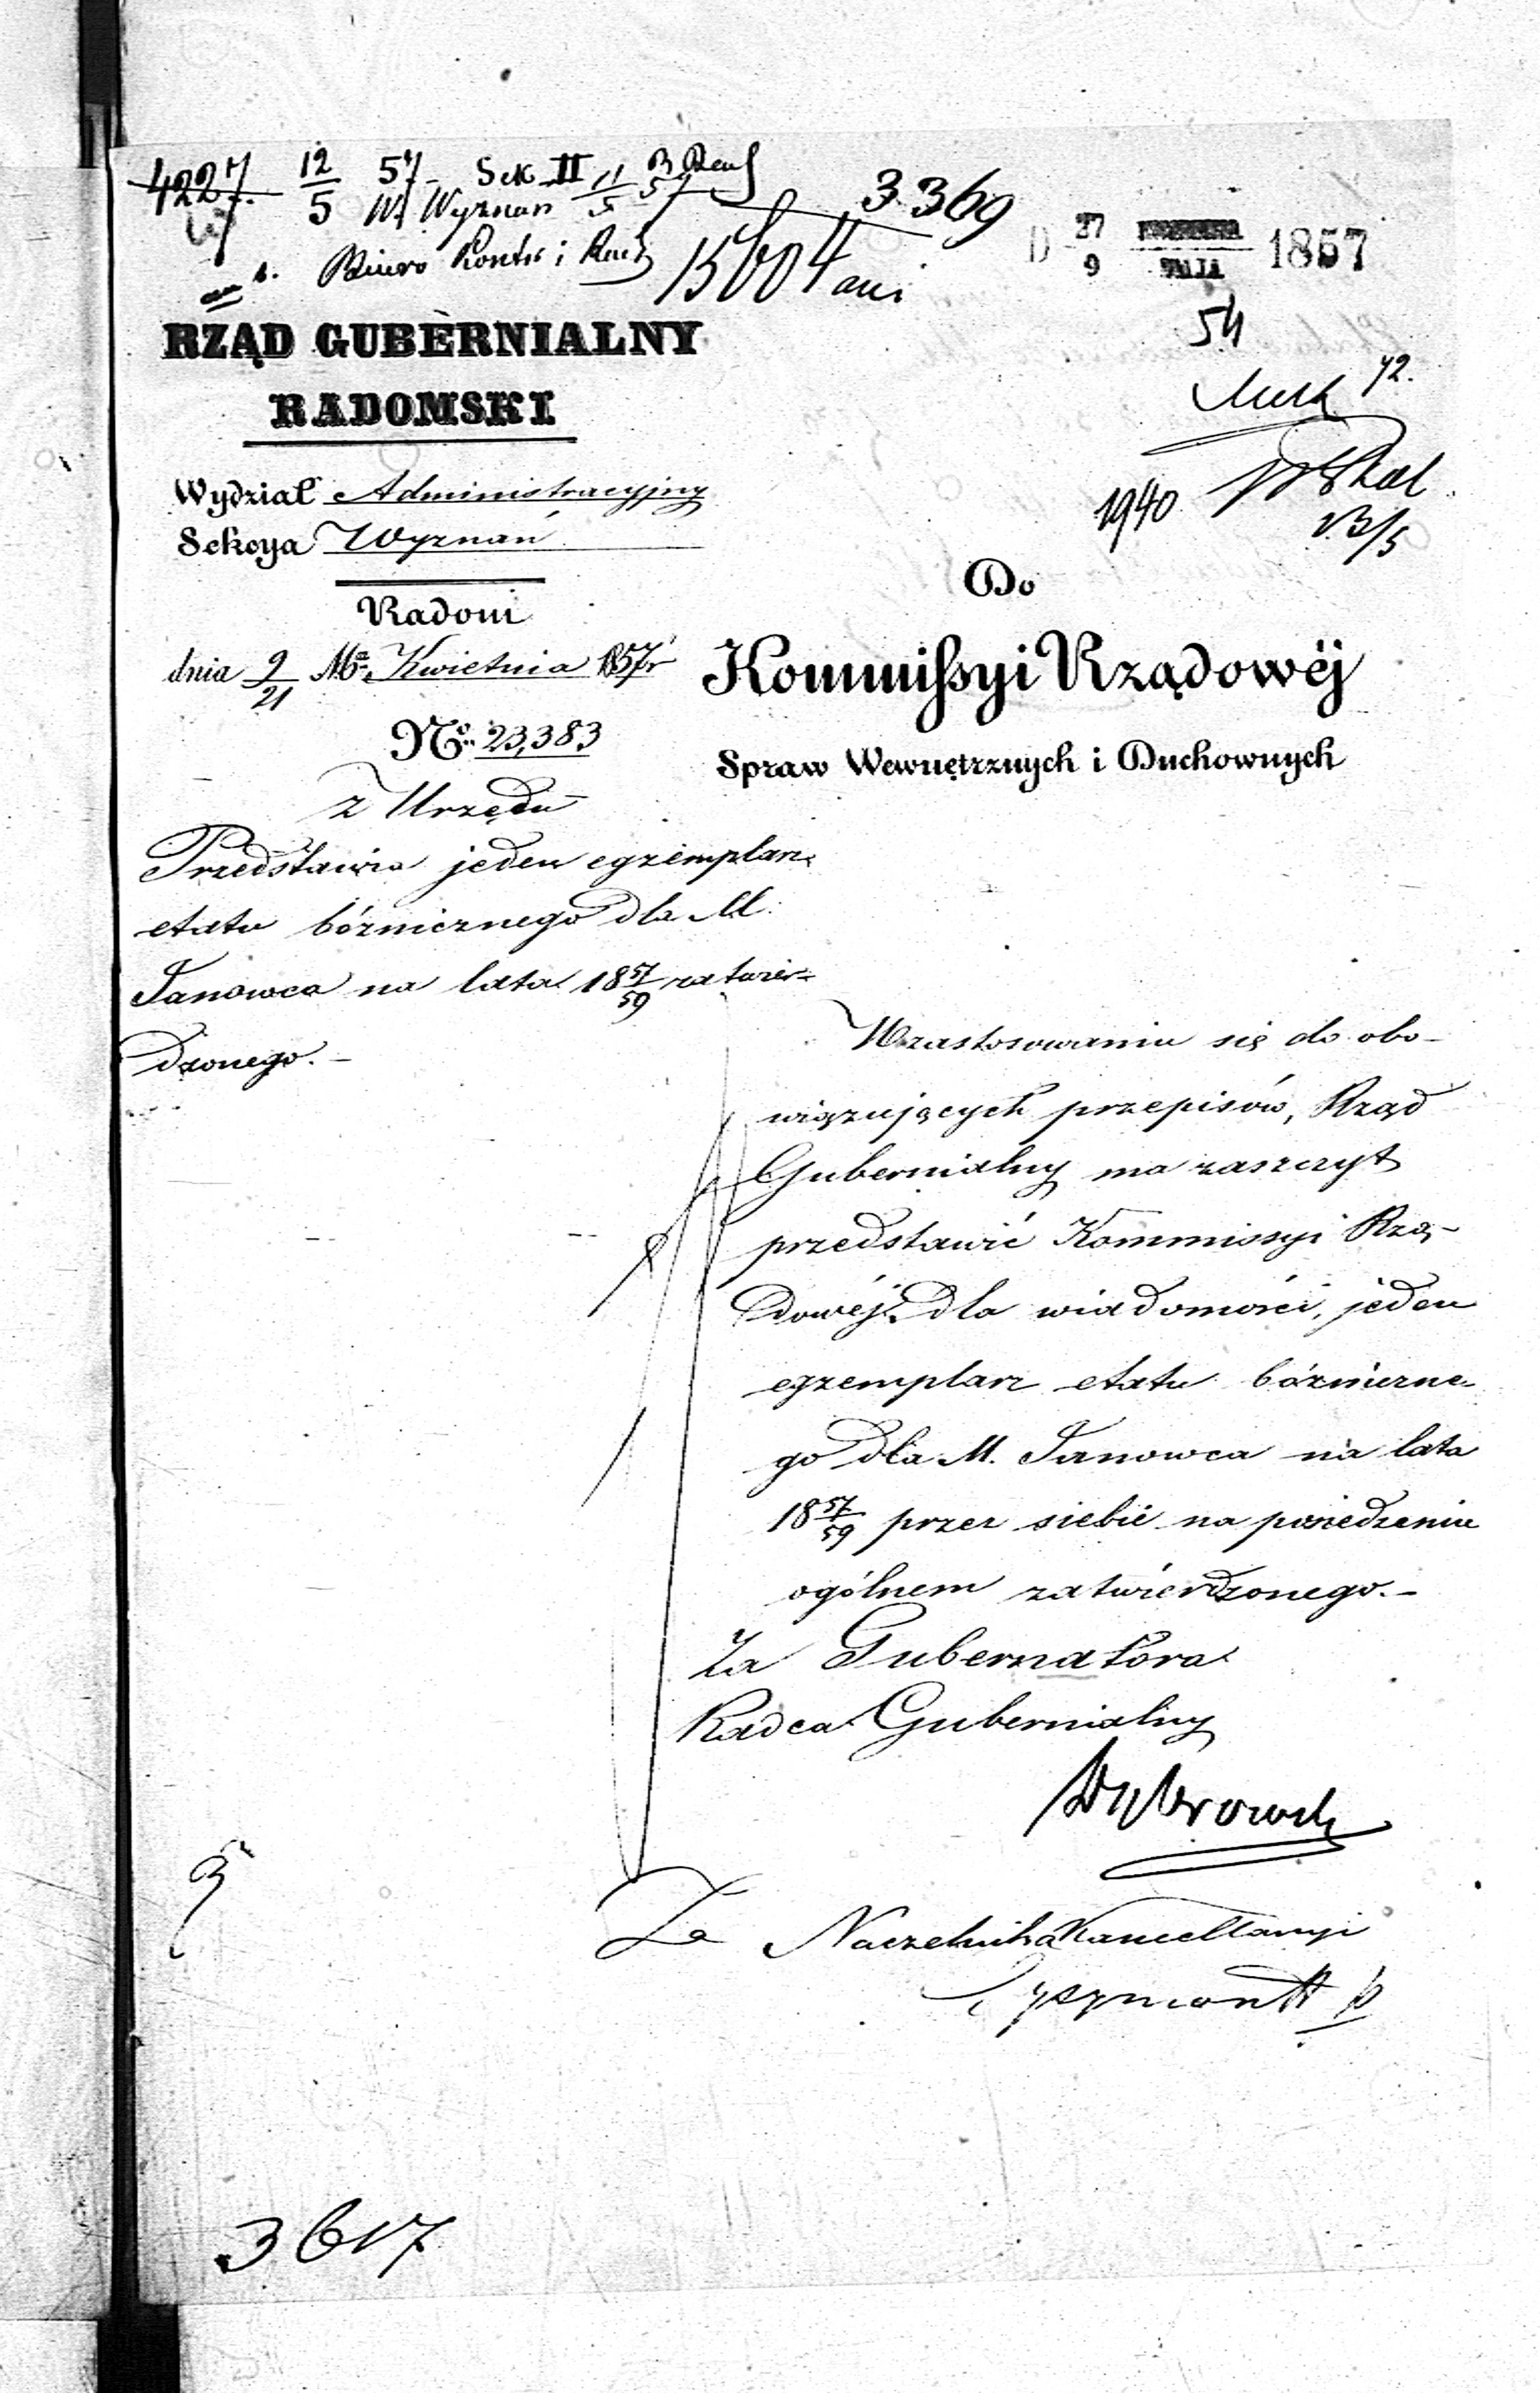 4227. 12/5 57 Sek II 11/5 57
W. Wyznań
3369
Biuro Kontr i Rach
15604
D 27/9 1857
54
RZĄD GUBERNIALNY
RADOMSKI
72.
1940
13/5
Wydział Administracyjny
Sekcya Wyznań
Radom
dnia 9/21 Mca Kwietnia 1857 r
No. 23,383
z Urzędu
Przedstawia jeden egzemplarz
etatu bóżnicznego dla M.
Janowca na lata 18 57/59 zatwier=
dzonego. –
Do
Kommissyi Rządowéj
Spraw Wewnętrznych i Duchownych
W zastosowaniu się do obo-
wiązujących przepisów, Rząd
Gubernialny ma zaszczyt
przedstawić Kommissyi Rzą-
dowéj dla wiadomości, jeden
egzemplarz etatu bóżniczne-
go dla M. Janowca na lata
18 57/59 przez siebie na posiedzeniu
ogólnem zatwierdzonego. –
Za Gubernatora
Radca Gubernialny
Za Naczelnika Kancellaryi
3617